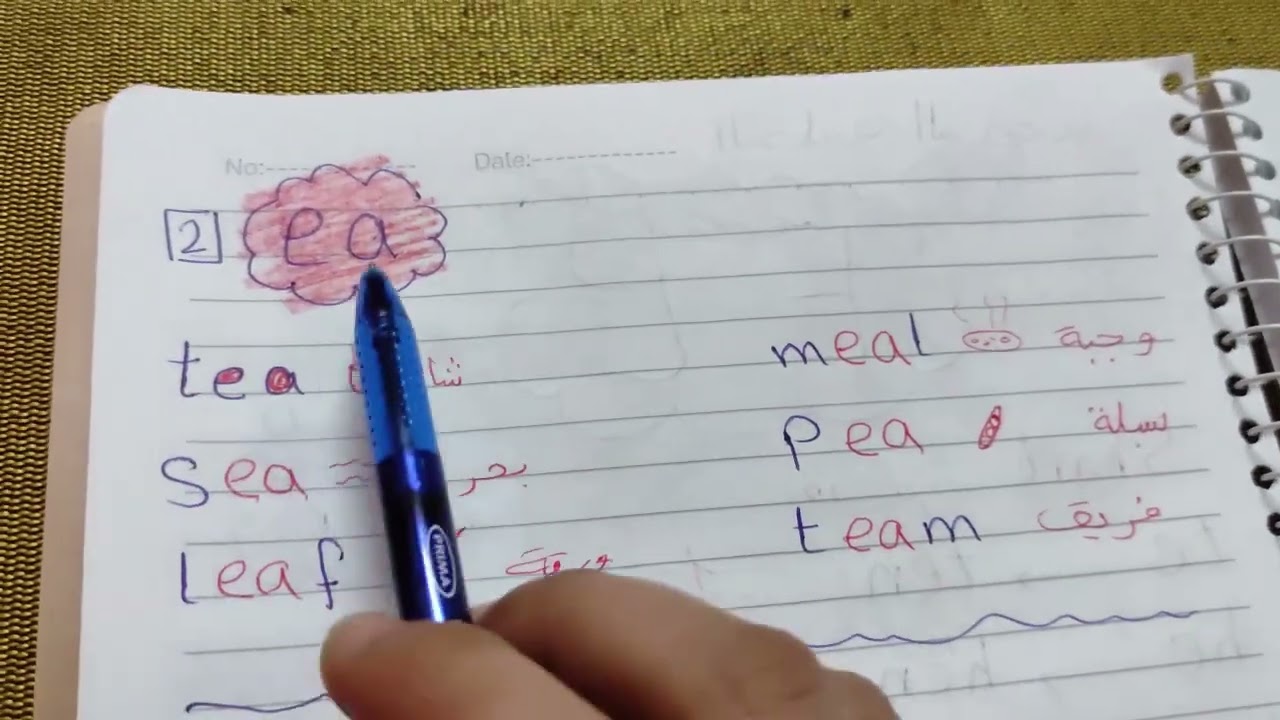 No:-------------- Date:--------------
2 ea
tea شا
sea بحر
leaf ورقة
meal وجبة
pea بسلة
team فريق
PRIMA